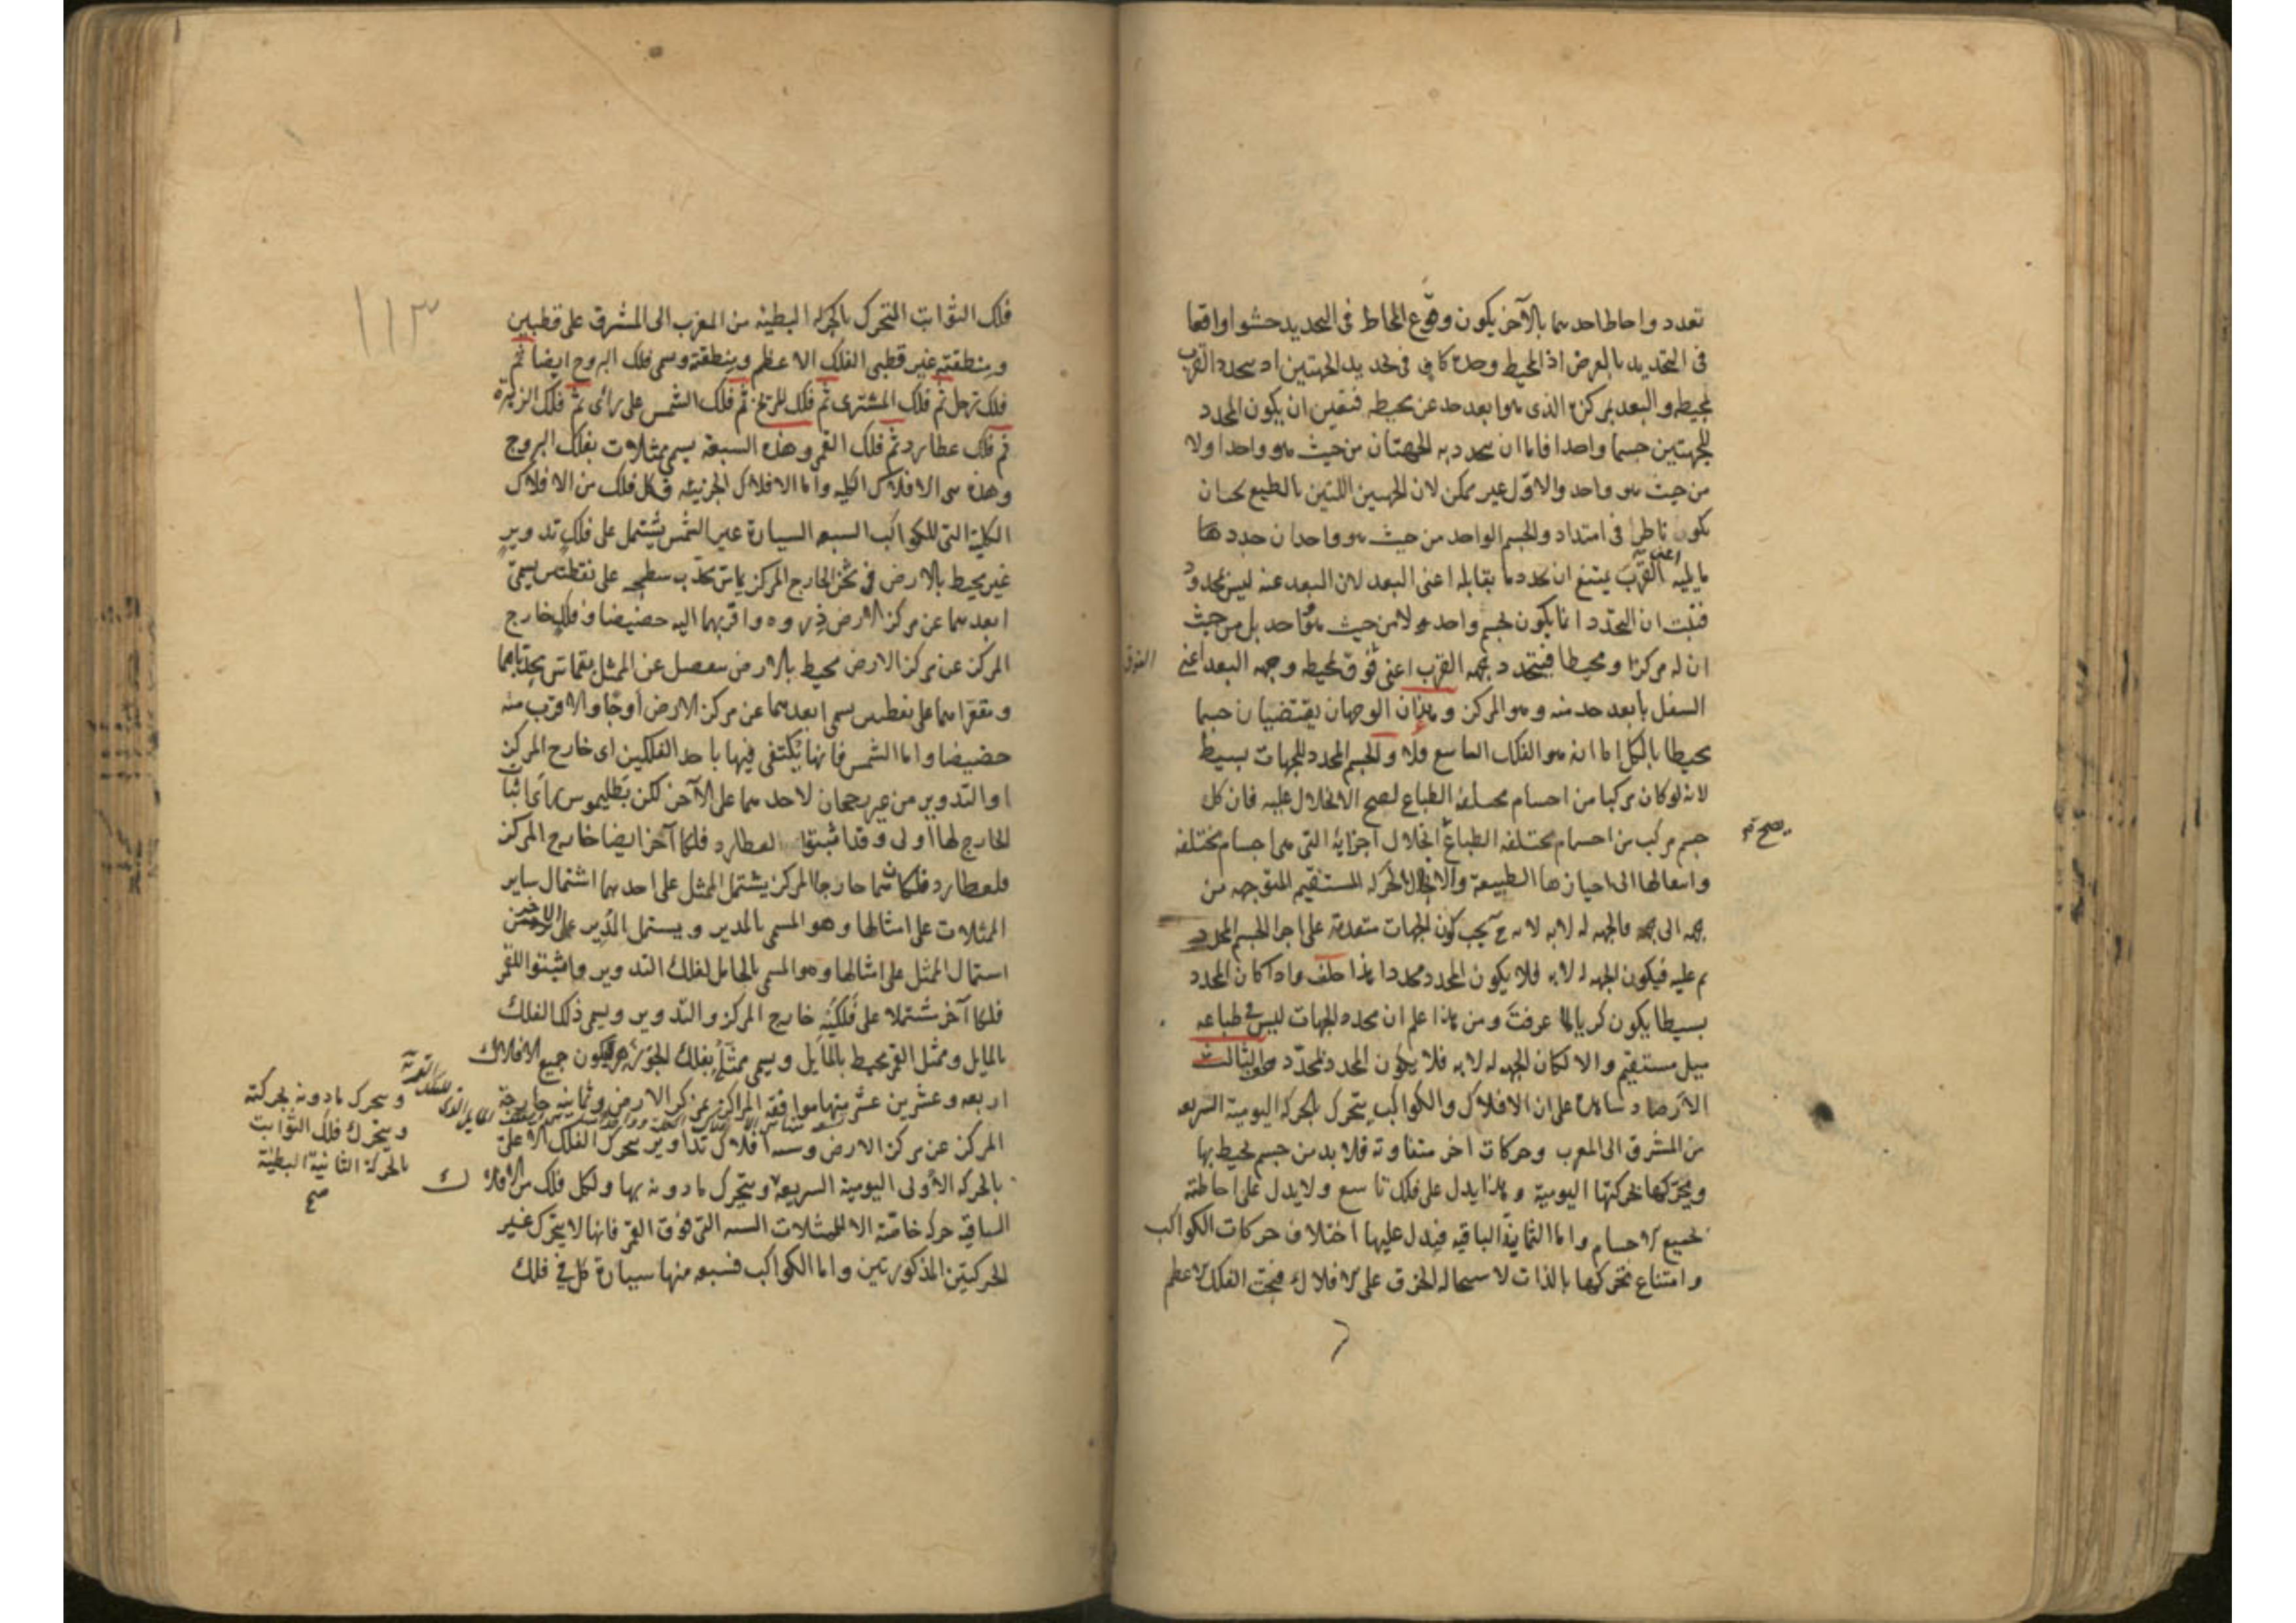 تعدد واحاط احدهما بالآخر يكون وقوع المحاط فى التحديد حشوا واقعا
فى التحديد بالعرض اذ المحيط وحده كاف فى تحديد الجهتين اذ يتحدد القرب
بمحيطه والبعد بمركزه الذى هو ابعد حد عن محيطه فتعين ان يكون المحدد
للجهتين جسما واحدا فاما ان يتحدد به الجهتان من حيث هو واحد او لا
من حيث هو واحد والاول غير ممكن لان الجهتين اللتين بالطبع
يكون فى امتداد والجسم الواحد من حيث هو واحد ان حدد
ما يليه اعنى به القرب يمتنع ان يحدد ما يقابله اعنى البعد لان البعد عنه ليس بمحدود
فثبت ان التحدد انما يكون بجسم واحد لا من حيث هو واحد بل من حيث
ان له مركزا ومحيطا فيتحدد جهة القرب اعنى فوق بمحيطه وجهة البعد اعنى
الفوق
السفل بابعد حد منه وهو المركز وهذان الوجهان يقتضيان جسما
محيطا بالكل اما انه هو الفلك التاسع فلا والجسم المحدد للجهات بسيط
لانه لو كان مركبا من اجسام مختلفة الطباع لصح الانحلال عليه فان كل
جسم مركب من اجسام مختلفة الطباع انحلال اجزائه التى هى اجسام مختلفة
يصح
وانتقالها الى احيازها الطبيعة والانحلال الحركة المستقيم المتوجه من
جهة الى جهة فالجهة له لا به لانه ح يجب كون الجهات متقدمة على اجزا الجسم المحدد
م عليه فيكون الجهة له لا به فلا يكون المحدد محددا هذا خلف واذا كان المحدد
بسيطا يكون كريا لما عرفت ومن هذا علم ان محدد الجهات ليس فى طباعه
ميل مستقيم والا لكان الجهة له لا به فلا يكون المحدد محددا والثالث
الارصاد شاهدة على ان الافلاك والكواكب يتحرك بالحركة اليومية السريعه
من المشرق الى المغرب وحركات اخر متفاوتة فلا بد من جسم محيط بها
ويحركها بحركتها اليومية وهذا يدل على فلك تاسع ولا يدل على احاطته
بجميع الاجسام واما الثمانية الباقيه فيدل عليها اختلاف حركات الكواكب
وامتناع تحركها بالذات لاستحالة الخرق على الافلاك فتحت الفلك الاعظم
١١٣
فلك الثوابت المتحرك بالحركة البطيئة من المغرب الى المشرق على قطبين
ومنطقته غير قطبى الفلك الاعظم ومنطقته وسمى فلك البروج ايضا ثم
فلك زحل ثم فلك المشترى ثم فلك المريخ ثم فلك الشمس على رأى ثم فلك الزهرة
ثم فلك عطارد ثم فلك القمر وهذه السبعة يسمى ممثلات بفلك البروج
وهذه هى الافلاك الكلية واما الافلاك الجزئية فكل فلك من الافلاك
الكلية التى للكواكب السبعة السيارة غير الشمس يشتمل على فلك تدوير
غير محيط بالارض فى ثخن الخارج المركز يماس محدب سطحه على نقطتين يسمى
ابعدهما عن مركز الارض ذروه واقربهما اليه حضيضا وفلك خارج
المركز عن مركز الارض محيط بالارض منفصل عن الممثل يتماس محدباهما
ومقعراهما على نقطتين يسمى ابعدهما عن مركز الارض اوجا والاقرب منه
حضيضا واما الشمس فانها يكتفى فيها باحد الفلكين اى خارج المركز
او التدوير من غير رجحان لاحدهما على الآخر لكن بطليموس رأى اثبات
الخارج لها اولى وقد اثبتوا لعطارد فلكا آخر ايضا خارج المركز
فلعطارد فلكان خارجا المركز يشتمل الممثل على احدهما اشتمال ساير
الممثلات على امثالها وهو المسمى بالمدير ويشتمل المدير على الآخر
اشتمال الممثل على امثالها وهو المسمى بالحامل لفلك التدوير واثبتوا للقمر
فلكا آخر مشتملا على فلكيه خارج المركز والتدوير ويسمى ذلك الفلك
بالمايل وممثل القمر محيط بالمايل ويسمى ممثله بفلك الجوزهر فيكون جميع الافلاك
اربعه وعشرين عشر منها موافقة المراكز بمركز الارض وثمانية خارجة
المركز عن مركز الارض وستة افلاك تداوير يتحرك الفلك الاعلى
بالحركة الاولى اليومية السريعة ويتحرك ما دونه بها ولكل فلك من الافلاك
الباقية حركة خاصة الا الممثلات الستة التى فوق القمر فانها لا يتحرك غير
الحركتين المذكورتين واما الكواكب فسبعه منها سيارة كل فى فلك
ويتحرك ما دونه بحركته
ويتحرك فلك الثوابت
بالحركة الثانية البطيئة
صح